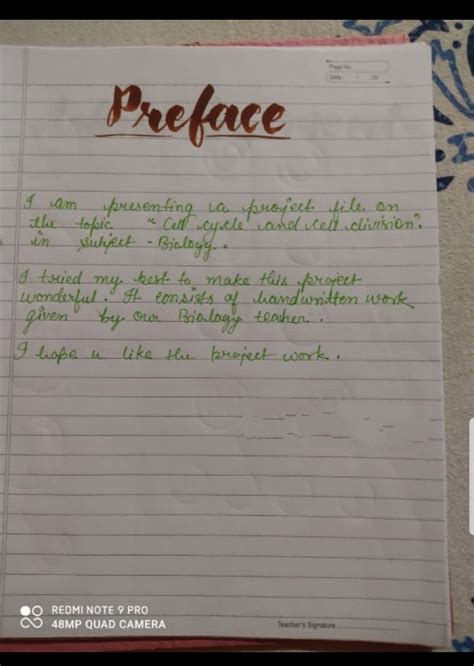 Page No.
Date / /20
Preface
I am presenting a project file on
the topic "Cell cycle and cell division".
in subject - Biology.
I tried my best to make this project
wonderful. It consists of handwritten work
given by our Biology teacher.
I hope u like the project work.
REDMI NOTE 9 PRO
48MP QUAD CAMERA
Teacher's Signature